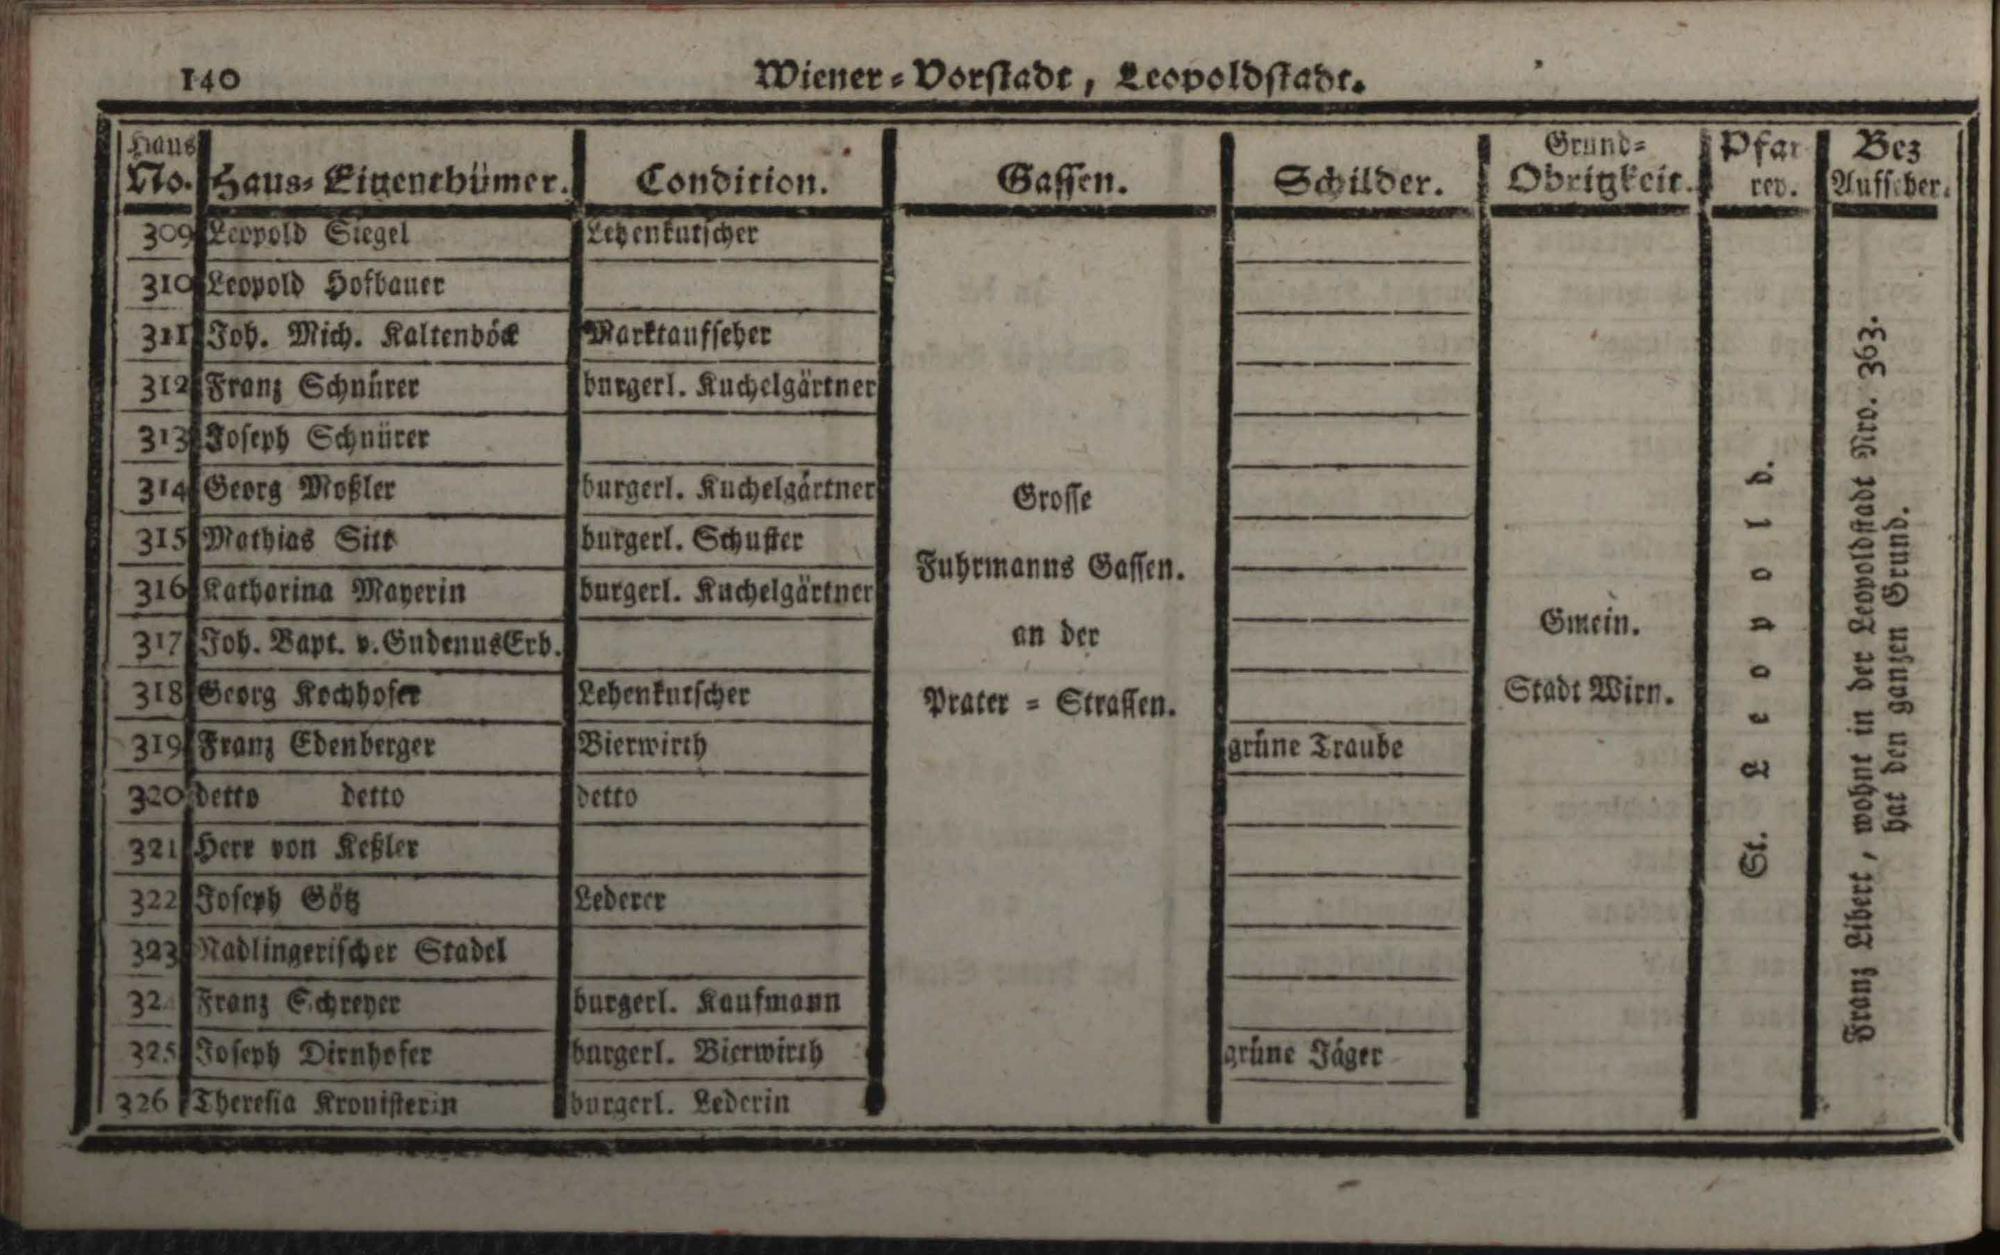 140
Wiener-Vorstadt, Leopoldstadt.
Haus No. Haus-Eigenthümer. Condition. Gassen. Schilder. Grund-Obrigkeit. Pfarren. Bez Aufseher.
309 Leopold Siegel Lehenkutscher
310 Leopold Hofbauer
311 Joh. Mich. Kaltenböck Marktaufseher
312 Franz Schnürer burgerl. Kuchelgärtner
313 Joseph Schnürer
314 Georg Moßler burgerl. Kuchelgärtner
315 Mathias Sitt burgerl. Schuster
316 Katharina Mayerin burgerl. Kuchelgärtner
317 Joh. Bapt. v. Gudenus Erb.
318 Georg Kochhofer Lehenkutscher
319 Franz Edenberger Bierwirth grüne Traube
320 detto detto detto
321 Herr von Keßler
322 Joseph Götz Lederer
323 Nadlingerischer Stadel
324 Franz Schreyer burgerl. Kaufmann
325 Joseph Dirnhofer burgerl. Bierwirth grüne Jäger
326 Theresia Kronisterin burgerl. Lederin
Grosse
Fuhrmanns Gassen.
an der
Prater - Strassen.
Gmein.
Stadt Wien.
St. Leopold.
Franz Libert, wohnt in der Leopoldstadt Nro. 363.
hat den ganzen Grund.